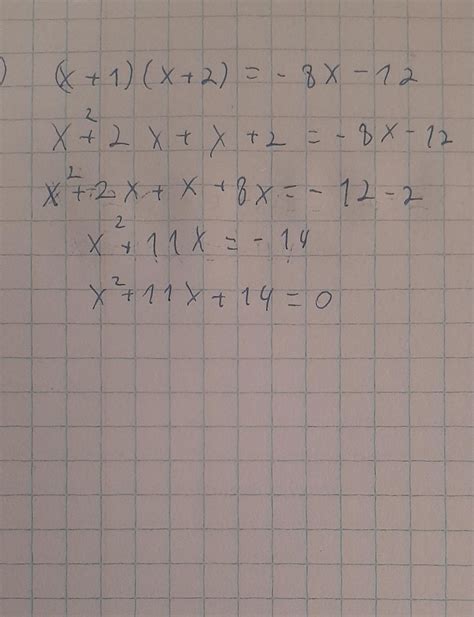 ) (x+1)(x+2) = -8x-12
x²+2x+x+2 = -8x-12
x²+2x+x+8x=-12-2
x²+11x=-14
x²+11x+14=0